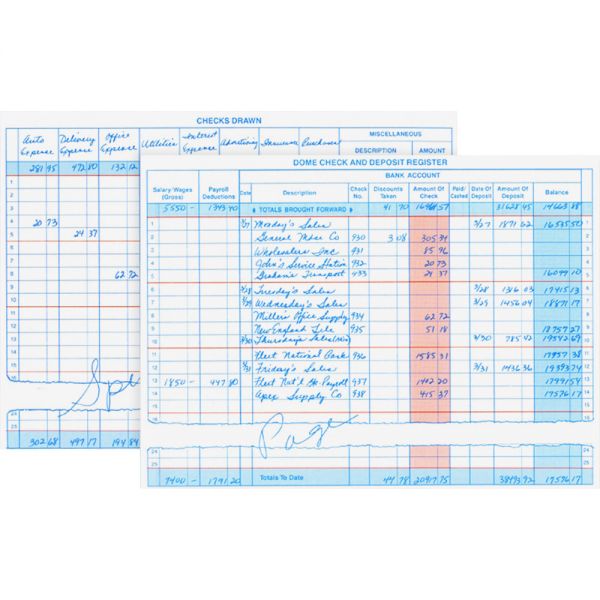 CHECKS DRAWN
MISCELLANEOUS
Auto Expense Delivery Expense Office Expense Utilities Interest Expense Advertising Insurance Purchases DESCRIPTION AMOUNT
281 95 472 80 132 12
1
2
3
4 20 73
5 24 37
6
7
8 62 72
9
10
11
12
13
14
15
16
24
25
302 68 497 17 194 84
DOME CHECK AND DEPOSIT REGISTER
BANK ACCOUNT
Salary/Wages (Gross) Payroll Deductions Date Description Check No. Discounts Taken Amount Of Check Paid/Cashed Date Of Deposit Amount Of Deposit Balance
5550 – 1343 40 TOTALS BROUGHT FORWARD 41 70 16964 57 31628 45 14663 88
1 3/27 Monday's Sales 3/27 1871 62 16535 50 1
2 General Mdse Co 930 3 08 305 34 2
3 Wholesalers Inc 931 85 96 3
4 John's Service Station 932 20 73 4
5 Graham's Transport 933 24 37 16099 10 5
6 3/28 Tuesday's Sales 3/28 1316 03 17415 13 6
7 3/29 Wednesday's Sales 3/29 1456 04 18871 17 7
8 Miller's Office Supply 934 62 72 8
9 New England Tele 935 51 18 18757 27 9
10 3/30 Thursday's Sales 3/30 785 42 19542 69 10
11 Fleet National Bank 936 1585 31 17957 38 11
12 3/31 Friday's Sales 3/31 1436 36 19393 74 12
13 1850 – 447 80 Fleet Nat'l Bk-Payroll 937 1402 20 17991 54 13
14 Apex Supply Co 938 415 37 17576 17 14
15 15
16 16
Page
24 24
25 25
7400 – 1791 20 Totals To Date 44 78 20917 75 38493 92 17576 17